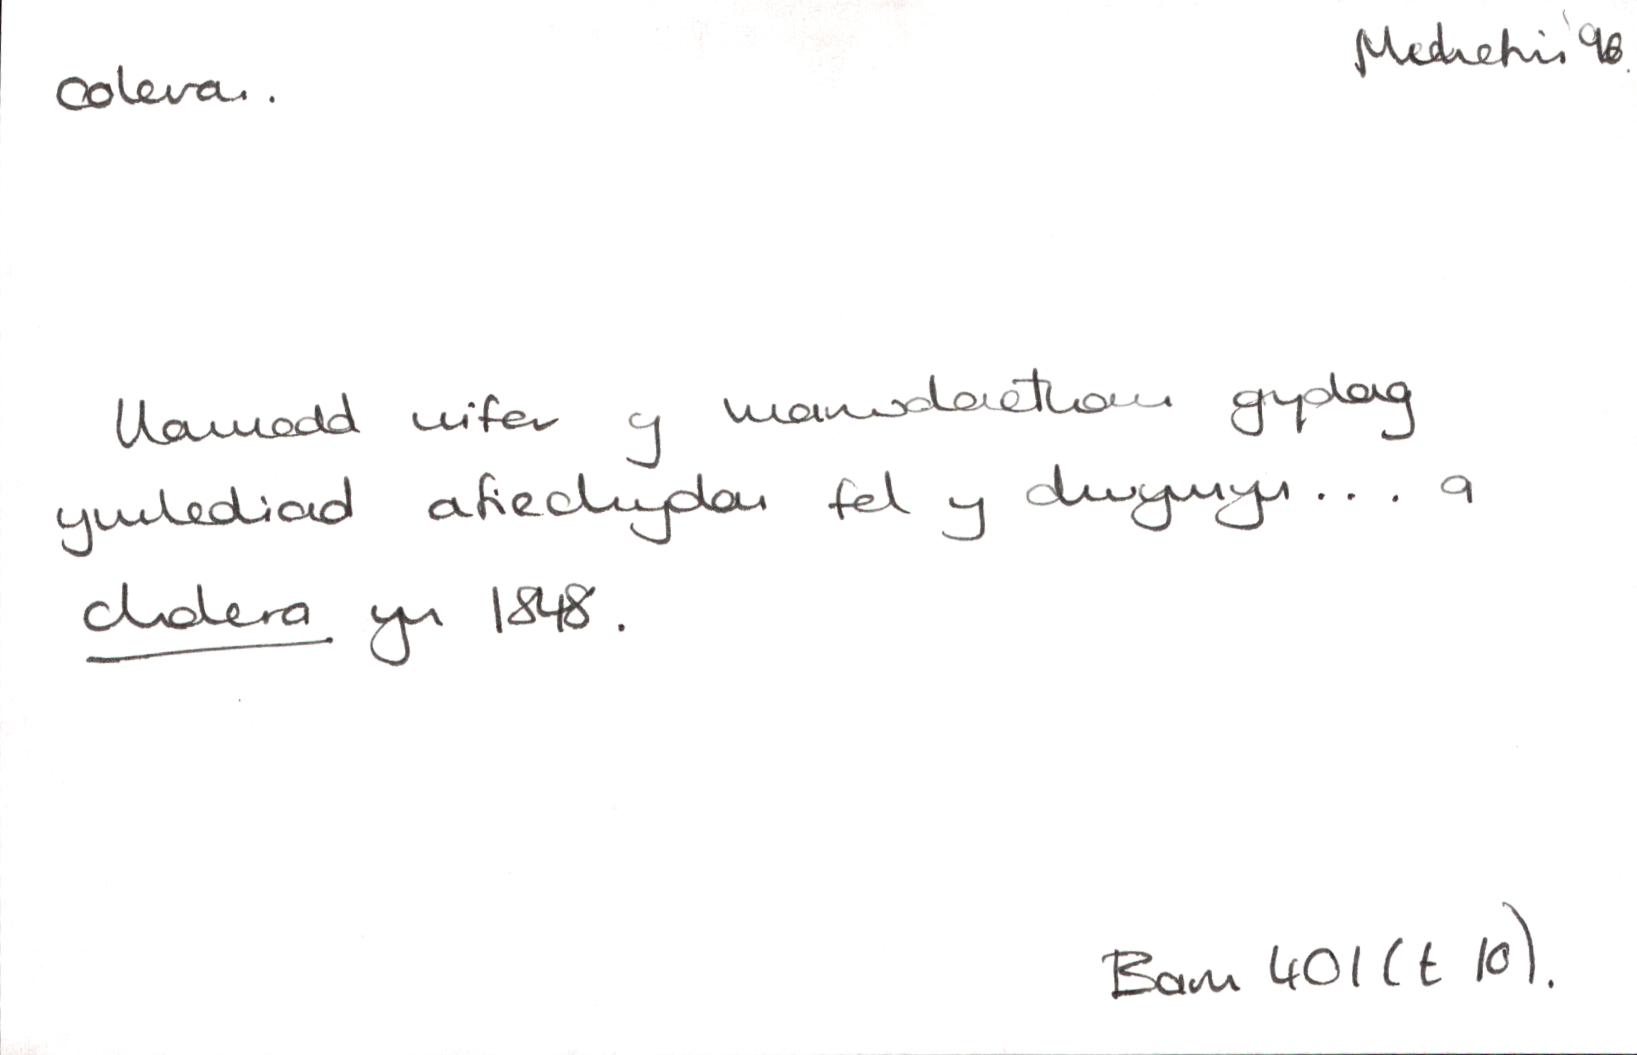 colera.
Mehefin '96.
Llamodd nifer y marwolaethau gydag
ymlediad afiechydon fel y dwymyn.... a
cholera yn 1848.
Barn 401 (t 10).